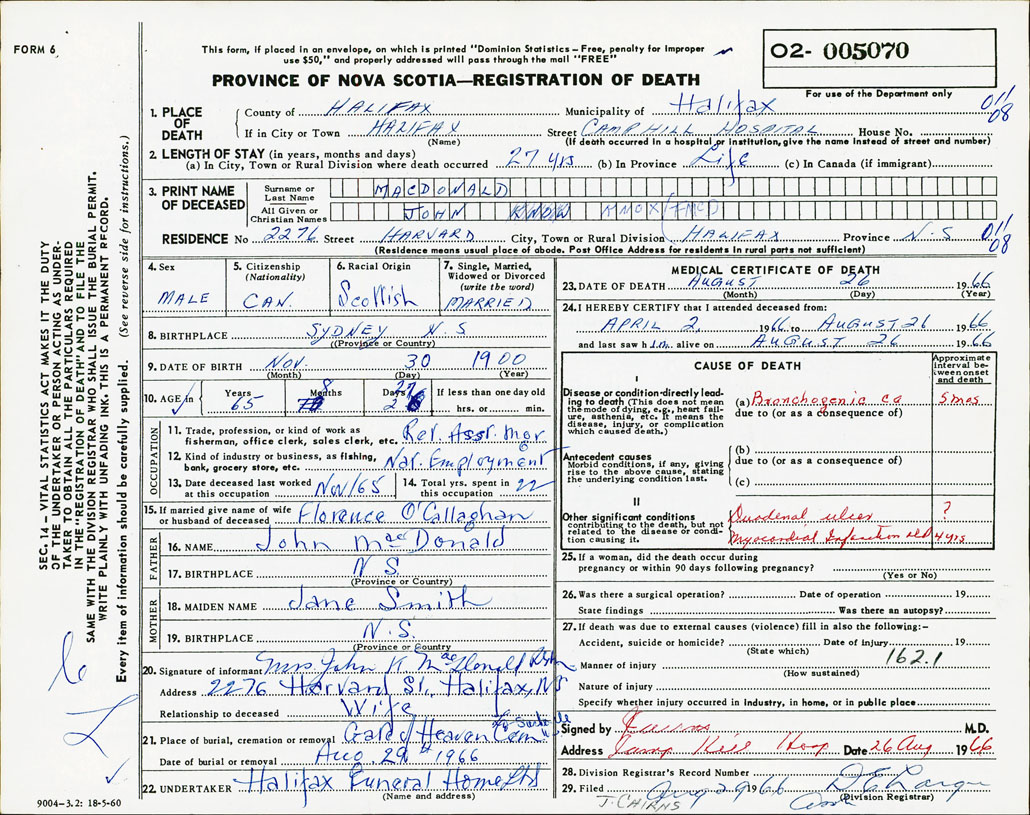 FORM 6
This form, if placed in an envelope, on which is printed "Dominion Statistics – Free, penalty for improper
use $50," and properly addressed will pass through the mail "FREE"
O2- 005070
For use of the Department only
PROVINCE OF NOVA SCOTIA—REGISTRATION OF DEATH
011
08
1. PLACE OF DEATH
County of HALIFAX Municipality of Halifax
If in City or Town HALIFAX Street CAMP HILL HOSPITAL House No.
(Name) (If death occurred in a hospital or institution, give the name instead of street and number)
2. LENGTH OF STAY (in years, months and days)
(a) In City, Town or Rural Division where death occurred 27 yrs (b) In Province Life (c) In Canada (if immigrant)
3. PRINT NAME OF DECEASED
Surname or Last Name MACDONALD
All Given or Christian Names JOHN KNOW KNOX
RESIDENCE No 2276 Street HARVARD City, Town or Rural Division HALIFAX Province N.S
011
08
(Residence means usual place of abode. Post Office Address for residents in rural parts not sufficient)
4. Sex MALE
5. Citizenship (Nationality) CAN.
6. Racial Origin Scottish
7. Single, Married, Widowed or Divorced (write the word) MARRIED
8. BIRTHPLACE SYDNEY N.S
(Province or Country)
9. DATE OF BIRTH NOV. 30 1900
(Month) (Day) (Year)
10. AGE in Years 65 Months 8 Days 27 If less than one day old hrs. or min.
OCCUPATION
11. Trade, profession, or kind of work as
fisherman, office clerk, sales clerk, etc. Ret. Asst. Mgr
12. Kind of industry or business, as fishing,
bank, grocery store, etc. Nat. Employment
13. Date deceased last worked at this occupation Nov/65
14. Total yrs. spent in this occupation 22
15. If married give name of wife
or husband of deceased Florence O'Callaghan
FATHER
16. NAME John MacDonald
17. BIRTHPLACE N.S.
(Province or Country)
MOTHER
18. MAIDEN NAME Jane Smith
19. BIRTHPLACE N.S.
(Province or Country)
20. Signature of informant Mrs. John K. MacDonald
Address 2276 Harvard St., Halifax, NS
Relationship to deceased Wife
21. Place of burial, cremation or removal Gate of Heaven Cem.
Date of burial or removal Aug. 29th 1966
22. UNDERTAKER Halifax Funeral Home Ltd
(Name and address)
MEDICAL CERTIFICATE OF DEATH
23. DATE OF DEATH AUGUST 26 1966
(Month) (Day) (Year)
24. I HEREBY CERTIFY that I attended deceased from:
APRIL 2, 1966 to AUGUST 26 1966
and last saw him alive on AUGUST 26 1966
CAUSE OF DEATH
Approximate interval between onset and death
I
Disease or condition directly leading to death (This does not mean
the mode of dying, e.g., heart failure, asthenia, etc. It means the
disease, injury, or complication
which caused death.)
(a) Bronchogenic ca 5 mos
due to (or as a consequence of)
Antecedent causes
Morbid conditions, if any, giving
rise to the above cause, stating
the underlying condition last.
(b)
due to (or as a consequence of)
(c)
II
Other significant conditions
contributing to the death, but not
related to the disease or condition causing it.
Duodenal ulcer ?
Myocardial Infarction old 4 yrs
25. If a woman, did the death occur during
pregnancy or within 90 days following pregnancy?
(Yes or No)
26. Was there a surgical operation? Date of operation 19
State findings Was there an autopsy?
27. If death was due to external causes (violence) fill in also the following:–
Accident, suicide or homicide? Date of injury 19
(State which)
162.1
Manner of injury
(How sustained)
Nature of injury
Specify whether injury occurred in industry, in home, or in public place
Signed by M.D.
Address Camp Hill Hosp Date 26 Aug 1966
28. Division Registrar's Record Number
29. Filed Aug 29 1966
(Division Registrar)
J. CAIRNS
SEC. 14 – VITAL STATISTICS ACT MAKES IT THE DUTY
OF THE UNDERTAKER OR PERSON ACTING AS UNDER-
TAKER TO OBTAIN ALL THE PARTICULARS REQUIRED
IN THE "REGISTRATION OF DEATH" AND TO FILE THE
SAME WITH THE DIVISION REGISTRAR WHO SHALL ISSUE THE BURIAL PERMIT.
WRITE PLAINLY WITH UNFADING INK. THIS IS A PERMANENT RECORD.
Every item of information should be carefully supplied. (See reverse side for instructions.)
9004-3.2: 18-5-60